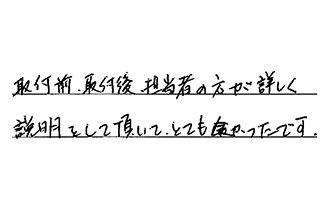 取付前、取付後、担当者の方が詳しく
説明をして頂いて、とても良かったです。